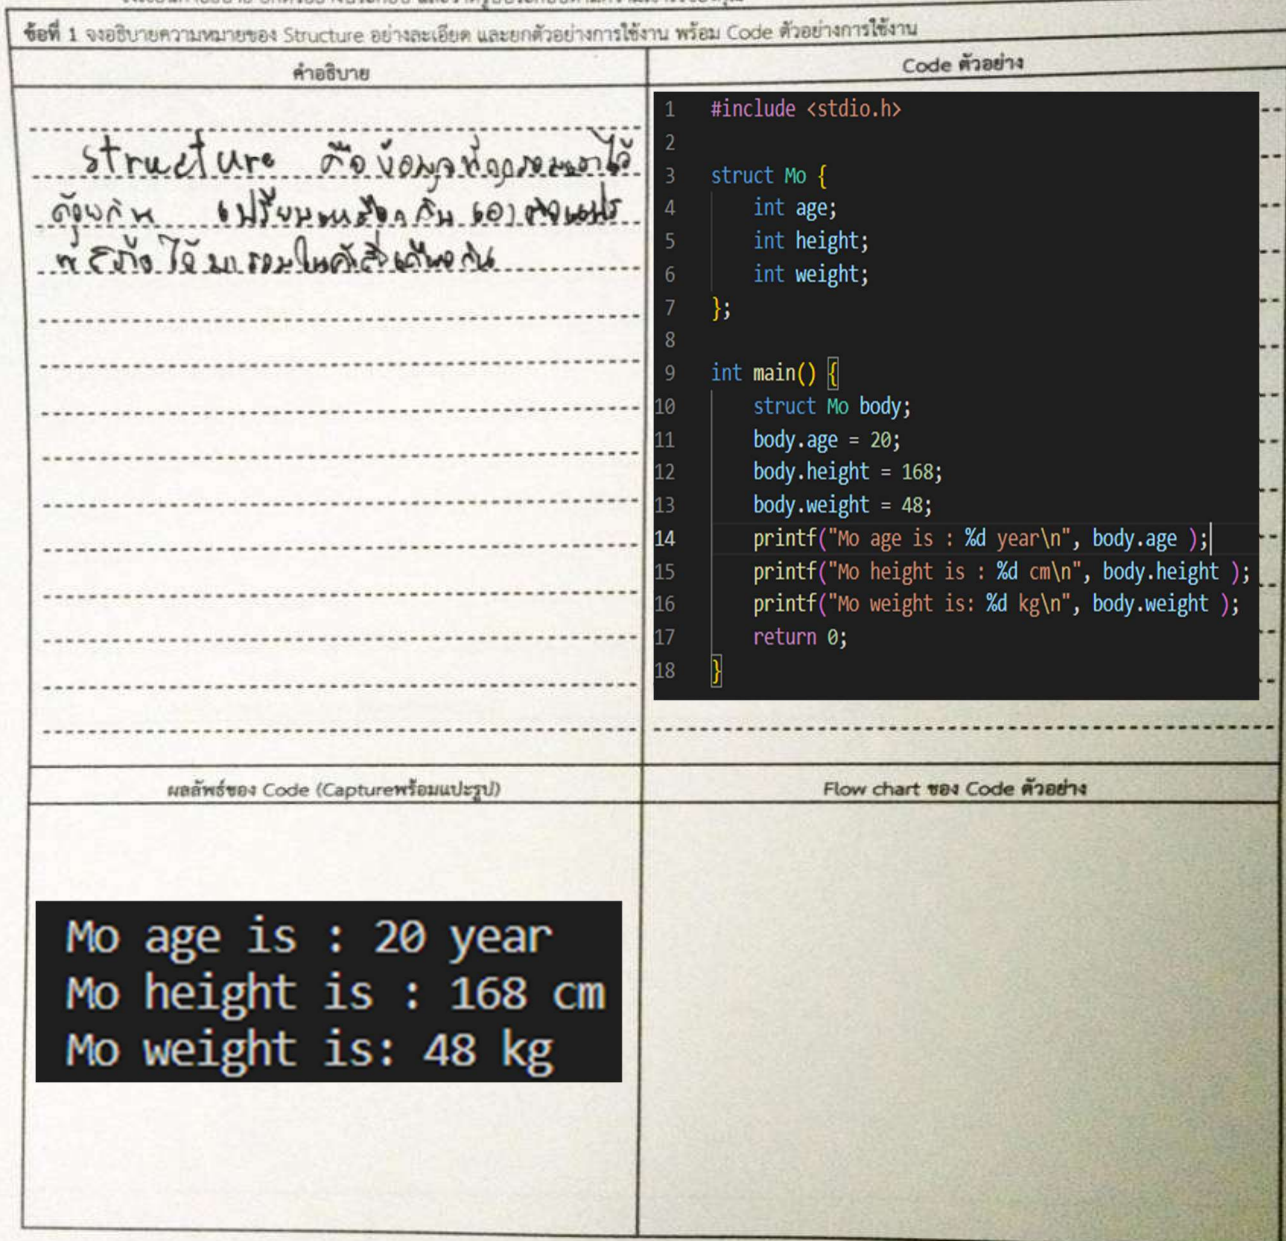 ข้อที่ 1 จงอธิบายความหมายของ Structure อย่างละเอียด และยกตัวอย่างการใช้งาน พร้อม Code ตัวอย่างการใช้งาน
คำอธิบาย
structure คือ ข้อมูลที่ถูกรวมเอาไว้
ด้วยกัน เปรียบเหมือนกับ เอาตัวแปร
มารวมในคำสั่งเดียวกัน
Code ตัวอย่าง
1 #include <stdio.h>
2
3 struct Mo {
4 int age;
5 int height;
6 int weight;
7 };
8
9 int main() {
10 struct Mo body;
11 body.age = 20;
12 body.height = 168;
13 body.weight = 48;
14 printf("Mo age is : %d year\n", body.age );
15 printf("Mo height is : %d cm\n", body.height );
16 printf("Mo weight is: %d kg\n", body.weight );
17 return 0;
18 }
ผลลัพธ์ของ Code (Captureพร้อมแปะรูป)
Mo age is : 20 year
Mo height is : 168 cm
Mo weight is: 48 kg
Flow chart ของ Code ตัวอย่าง